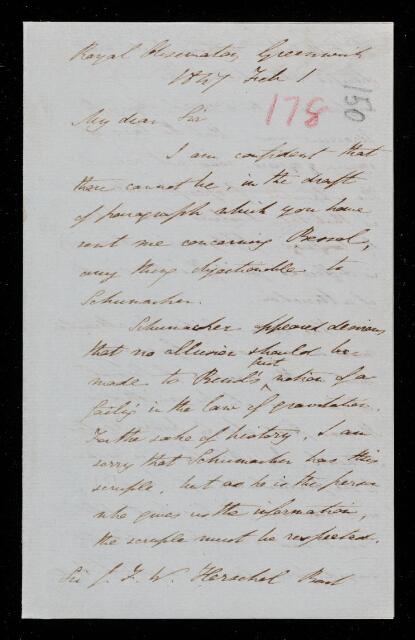 Royal Observatory Greenwich
1847 Feb 1
178
150
My dear Sir
I am confident that
there cannot be, in the draft
of paragraph which you have
sent me concerning Bessel,
any thing objectionable to
Schumacher.
Schumacher appeared desirous
that no allusion should be
first
made to Bessel's notion of a
failing in the law of gravitation.
For the sake of history, I am
sorry that Schumacher has this
scruple, but as he is the person
who gives us the information,
the scruple must be respected.
Sir J. F. W. Herschel Bart